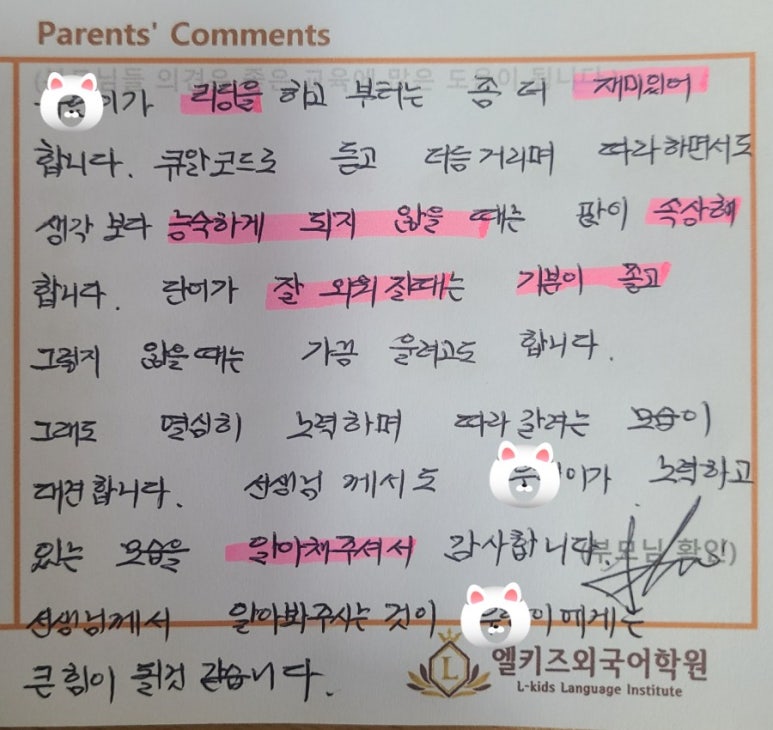 Parents' Comments
이가 리딩을 하고 부터는 좀 더 재미있어
합니다. 큐알코드로 듣고 더듬거리며 따라하면서도
생각 보다 능숙하게 되지 않을 때는 많이 속상해
합니다. 단어가 잘 외워 질때는 기분이 좋고
그렇지 않을때는 가끔 울려고도 합니다.
그래도 열심히 노력하며 따라 갈려는 모습이
대견합니다. 선생님 께서도 이가 노력하고
있는 모습을 알아채주셔서 감사합니다.
부모님 확인)
선생님께서 알아봐주시는 것이 이에게는
큰 힘이 될것 같습니다.
엘키즈외국어학원
L-kids Language Institute